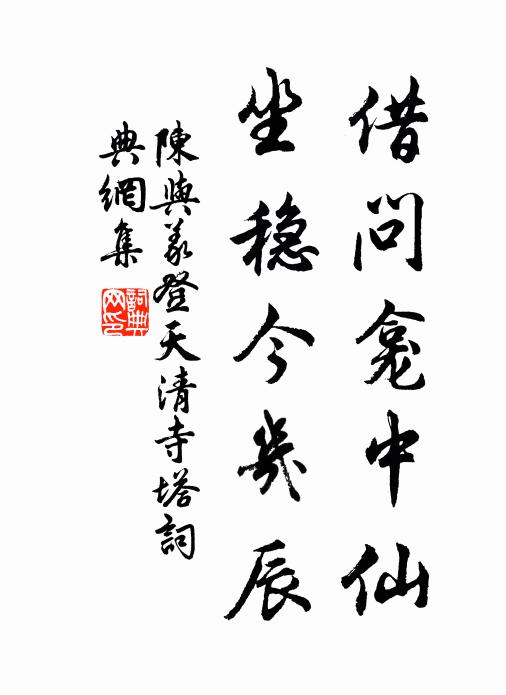 借问龛中仙
坐稳今几辰
陳與義登天清寺塔詞
典網集
詞典
网印